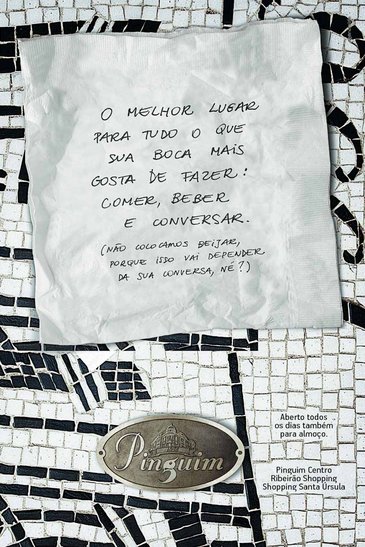 O MELHOR LUGAR
PARA TUDO O QUE
SUA BOCA MAIS
GOSTA DE FAZER:
COMER, BEBER
E CONVERSAR.
(NÃO COLOCAMOS BEIJAR,
PORQUE ISSO VAI DEPENDER
DA SUA CONVERSA, NÉ?)
Pinguim
Aberto todos
os dias também
para almoço.
Pinguim Centro
Ribeirão Shopping
Shopping Santa Úrsula